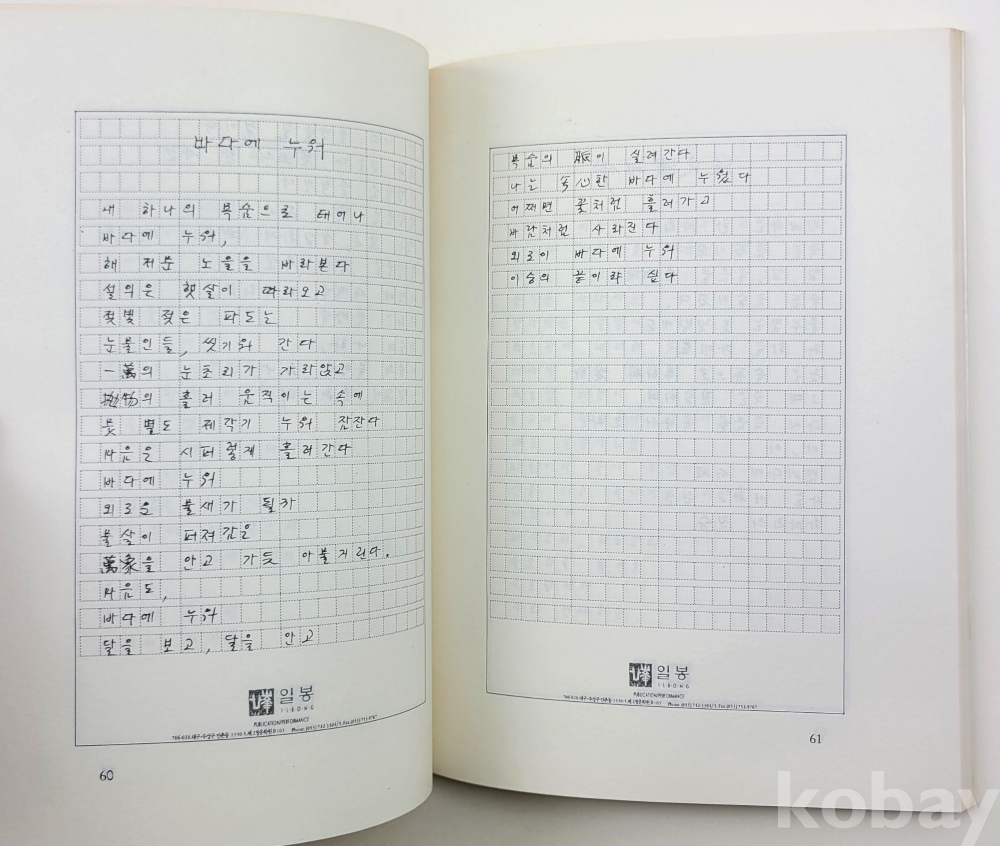 바다에 누워
내 하나의 목숨으로 태어나
바다에 누워,
해 저문 노을을 바라본다
설익은 햇살이 따라오고
젖빛 젖은 파도는
눈물인들, 씻기워 간다
一萬의 눈초리가 가라앉고
抛物의 흘러 움직이는 속에
뭇 별도 제각기 누워 잠잔다
마음은 시퍼렇게 흘러간다
바다에 누워
외로운 물새가 될까
물살이 퍼져감은
萬象을 안고 가듯 아물거린다.
마음도,
바다에 누워
달을 보고, 달을 안고
일봉
ILBONG
PUBLICATION/PERFORMANCE
60
목숨의 脈이 실려간다
나는 無心한 바다에 누웠다
어쩌면 꽃처럼 흘러가고
바람처럼 사라진다
외로이 바다에 누워
이승의 끝이랴 싶다
일봉
ILBONG
PUBLICATION/PERFORMANCE
61
kobay